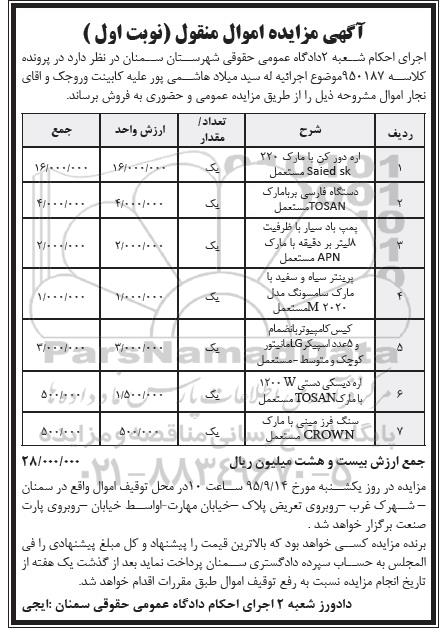 آگهی مزایده اموال منقول (نوبت اول )
اجرای احکام شعبه ۲دادگاه عمومی حقوقی شهرستان سمنان در نظر دارد در پرونده
کلاسه ۹۵۰۱۸۷موضوع اجرائیه له سید میلاد هاشمی پور علیه کابینت وروجک و اقای
نجار اموال مشروحه ذیل را از طریق مزایده عمومی و حضوری به فروش برساند.
ردیف شرح تعداد/مقدار ارزش واحد جمع
۱ اره دور کن با مارک ۲۲۰ Saied sk مستعمل یک ۱۶/۰۰۰/۰۰۰ ۱۶/۰۰۰/۰۰۰
۲ دستگاه فارسی بربامارک TOSANمستعمل یک ۴/۰۰۰/۰۰۰ ۴/۰۰۰/۰۰۰
۳ پمپ باد سیار با ظرفیت ۸لیتر بر دقیقه با مارک APN مستعمل یک ۲/۰۰۰/۰۰۰ ۲/۰۰۰/۰۰۰
۴ پرینتر سیاه و سفید با مارک سامسونگ مدل M۲۰۲۰مستعمل یک ۱/۰۰۰/۰۰۰ ۱/۰۰۰/۰۰۰
۵ کیس کامپیوتربانضمام و ۵عدد اسپیکرLGمانیتور کوچک و متوسط –مستعمل یک ۳/۰۰۰/۰۰۰ ۳/۰۰۰/۰۰۰
۶ اره دیسکی دستی ۱۲۰۰W با مارکTOSAN مستعمل یک ۱/۵۰۰/۰۰۰ ۵۰۰/۰۰۰
۷ سنگ فرز مینی با مارک CROWN مستعمل یک ۵۰۰/۰۰۰ ۵۰۰/۰۰۰
جمع ارزش بیست و هشت میلیون ریال ۲۸/۰۰۰/۰۰۰
مزایده در روز یکشنبه مورخ ۹۵/۹/۱۴ ساعت ۱۰در محل توقیف اموال واقع در سمنان
– شهرک غرب –روبروی تعریض پلاک –خیابان مهارت-اواسط خیابان –روبروی پارت
صنعت برگزار خواهد شد .
برنده مزایده کسی خواهد بود که بالاترین قیمت را پیشنهاد و کل مبلغ پیشنهادی را فی
المجلس به حساب سپرده دادگستری سمنان پرداخت نماید بعد از گذشت یک هفته از
تاریخ انجام مزایده نسبت به رفع توقیف اموال طبق مقررات اقدام خواهد شد.
دادورز شعبه ۲ اجرای احکام دادگاه عمومی حقوقی سمنان :ایجی
ParsNamadData
۰۲۱-۸۸۳۴۹۶۷۰-۵